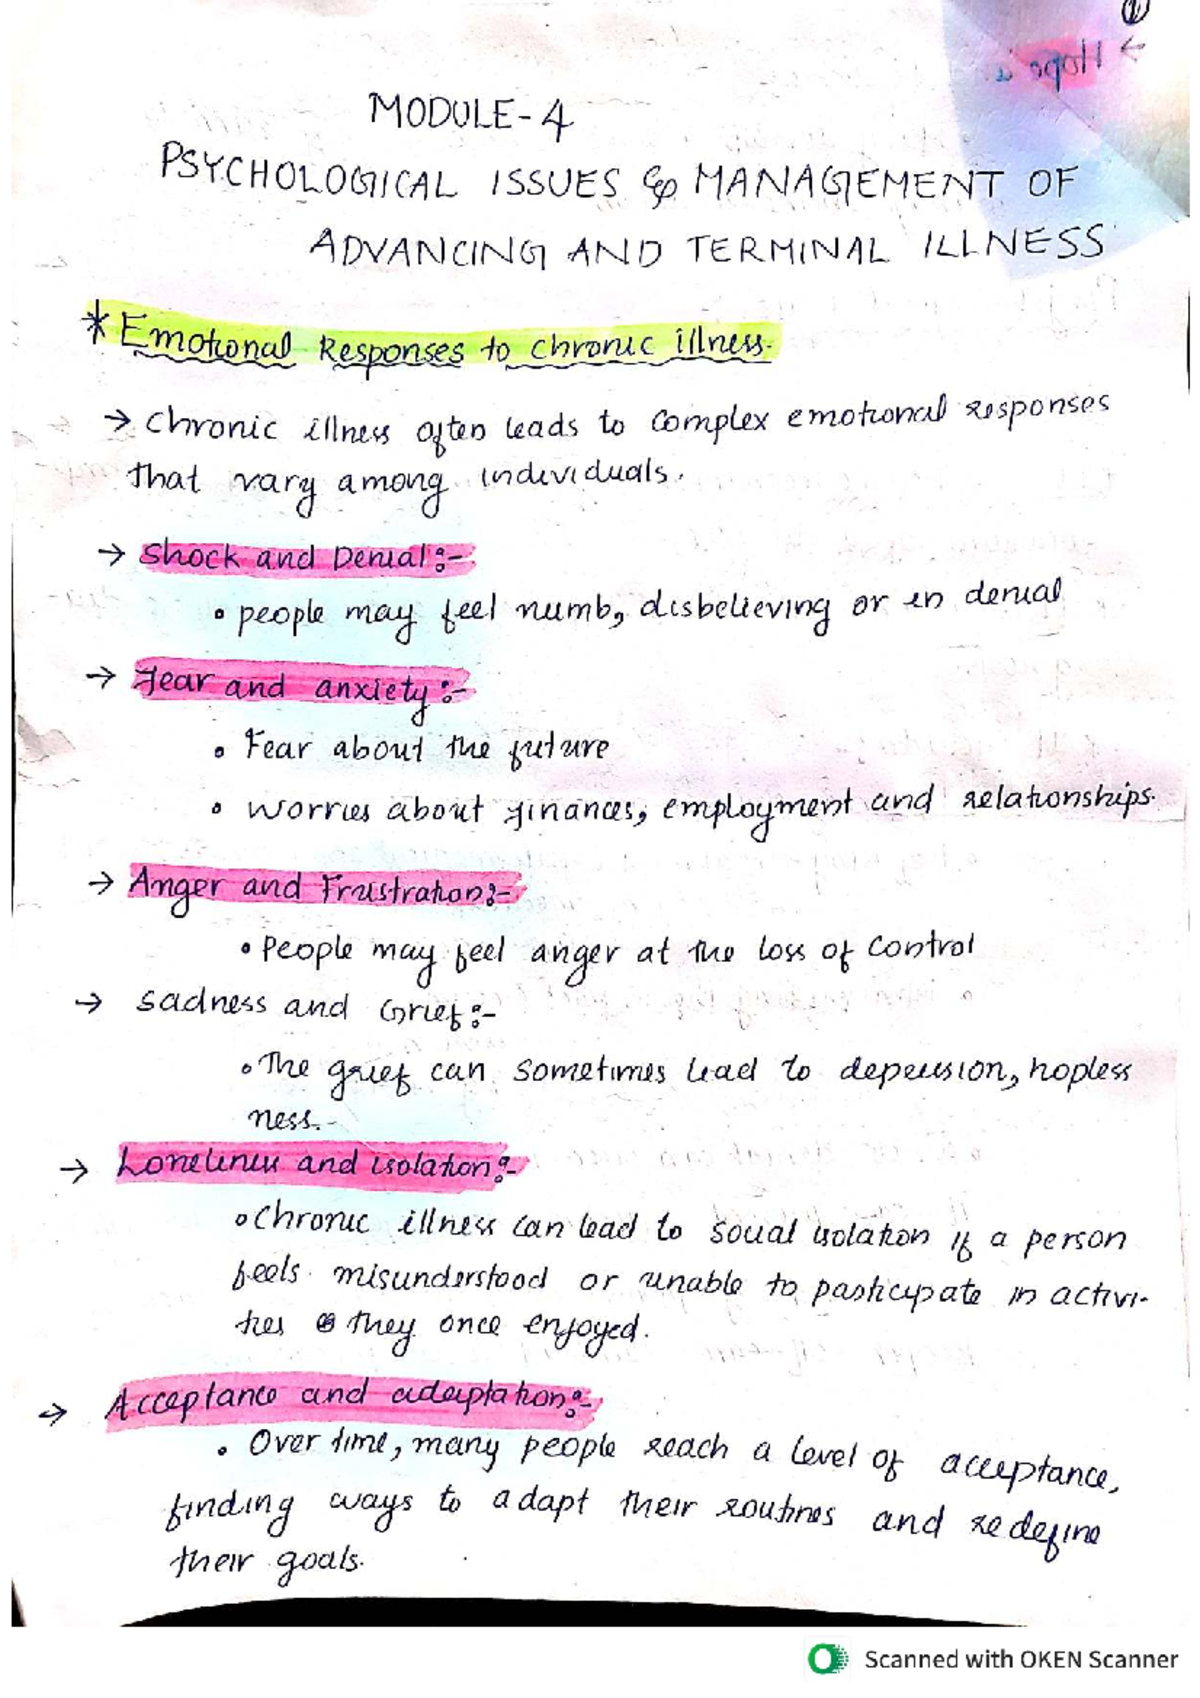 ①
→ Hope
MODULE-4
PSYCHOLOGICAL ISSUES & MANAGEMENT OF
ADVANCING AND TERMINAL ILLNESS
* Emotional Responses to chronic illness.
→ Chronic illness often leads to complex emotional responses
that vary among individuals.
→ Shock and Denial:-
• people may feel numb, disbelieving or in denial
→ Fear and anxiety:-
• Fear about the future
• Worries about finances, employment and relationships.
→ Anger and Frustration:-
• People may feel anger at the loss of control
→ Sadness and Grief:-
• The grief can sometimes lead to depression, hopless
ness.-
→ Loneliness and isolation:-
• Chronic illness can lead to social isolation if a person
feels misunderstood or unable to participate in activi-
ties they once enjoyed.
→ Acceptance and adaptation:-
• Over time, many people reach a level of acceptance,
finding ways to adapt their routines and redefine
their goals.
Scanned with OKEN Scanner